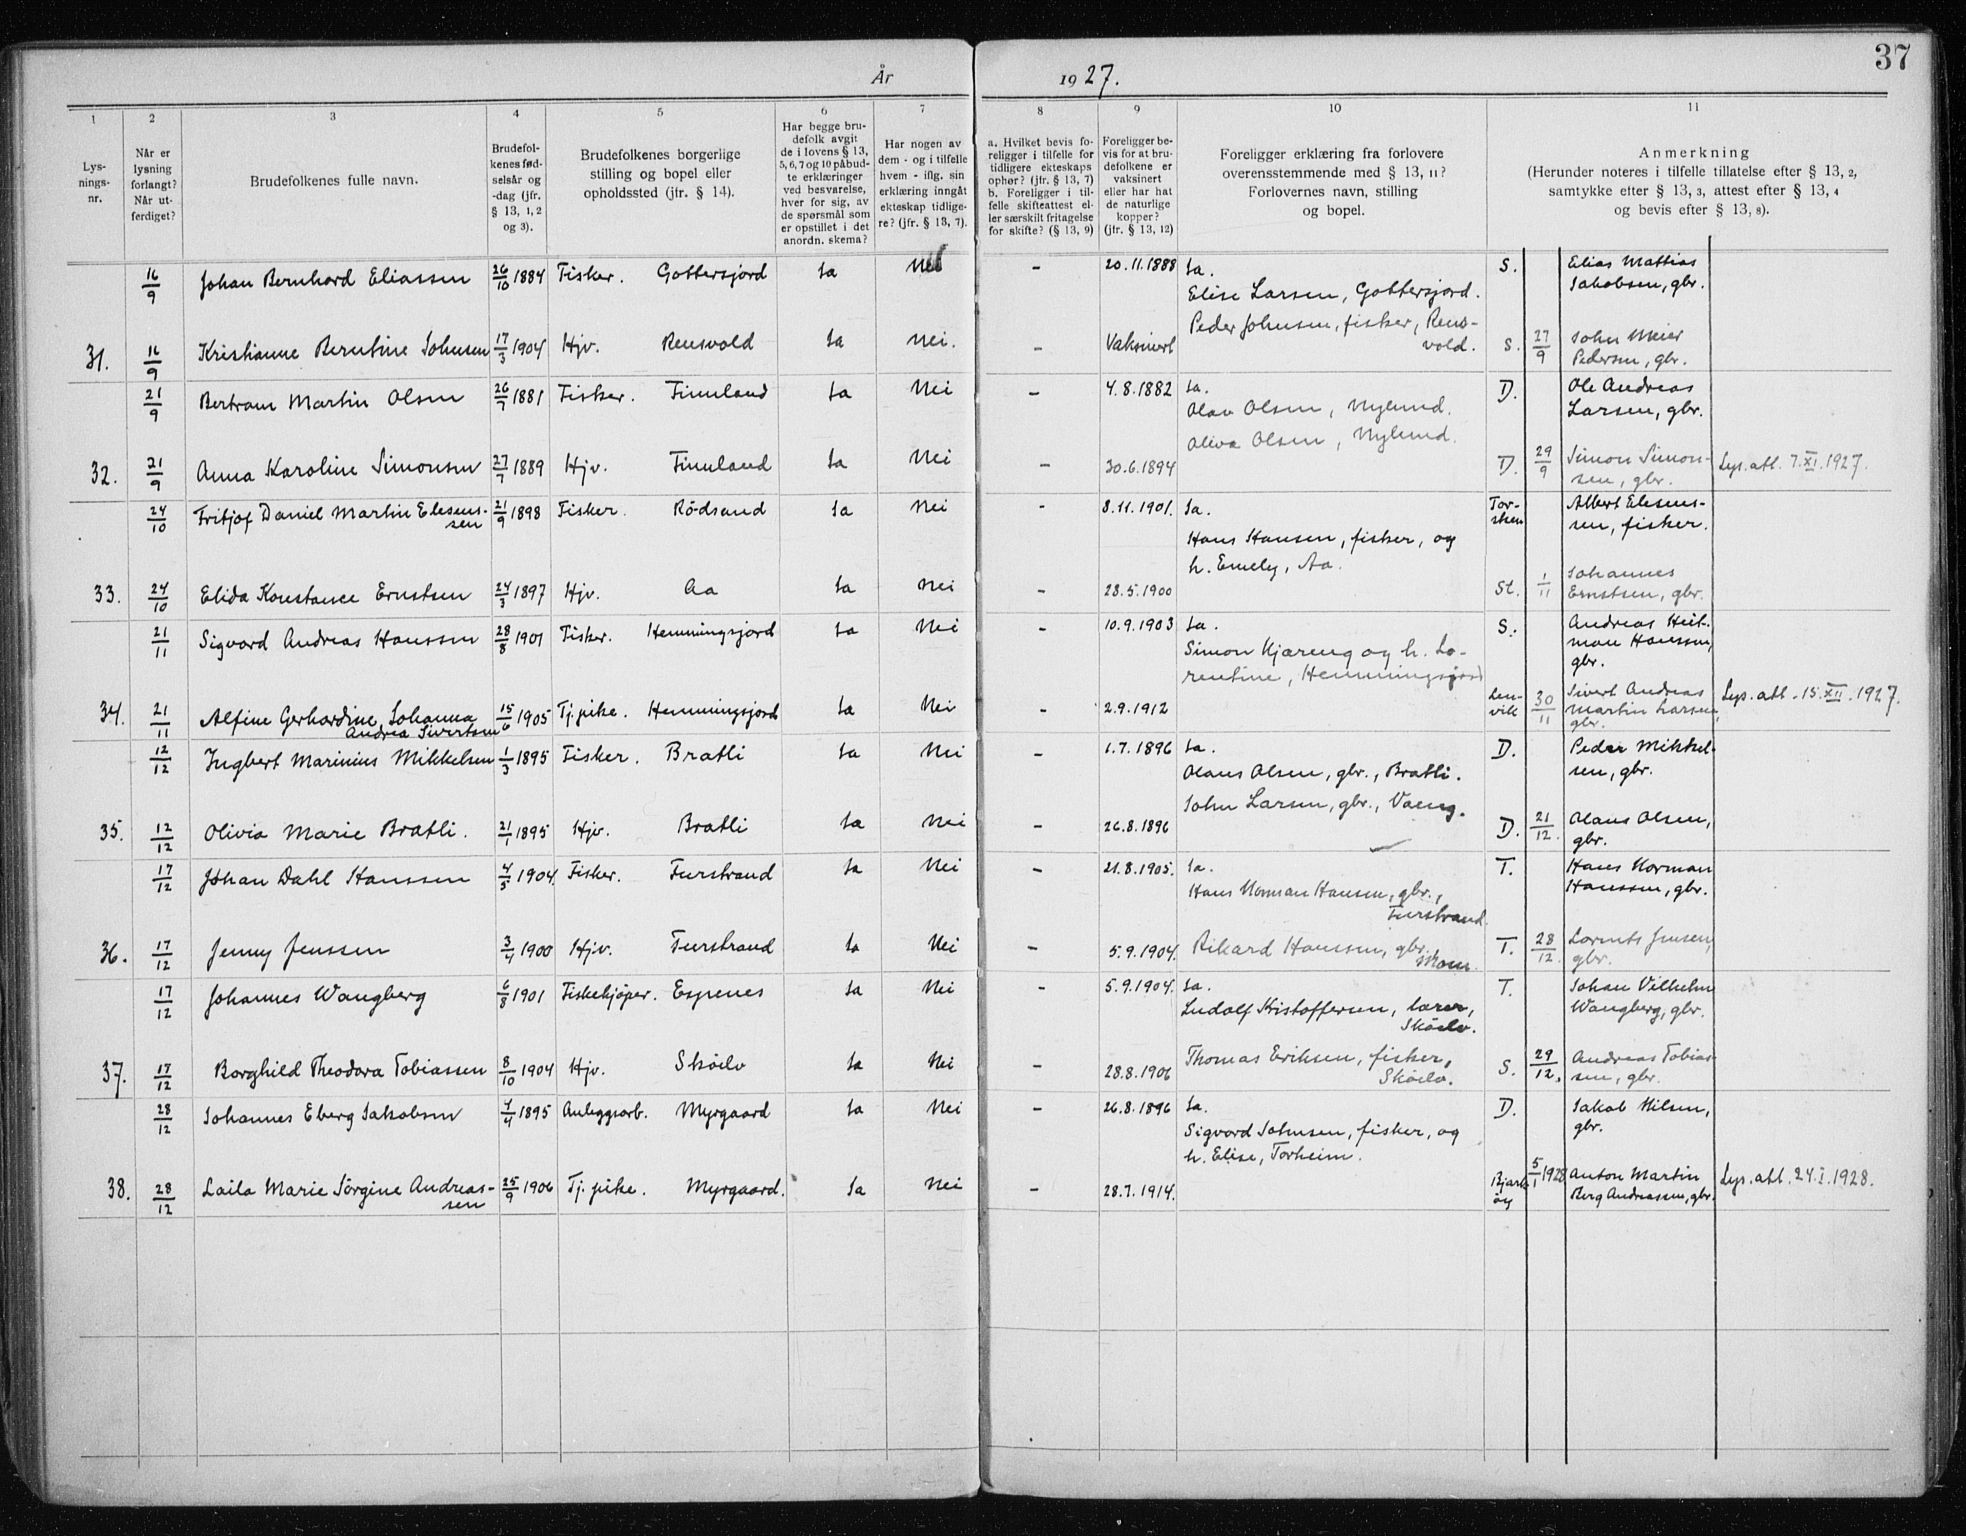 37
År 1927.
1 2 3 4 5 6 7 8 9 10 11
Lys-
nings-
nr.
Når er
lysning
forlangt?
Når ut-
ferdiget?
Brudefolkenes fulle navn.
Brudefol-
kenes fød-
selsår og
-dag (jfr.
§ 13, 1, 2
og 3).
Brudefolkenes borgerlige
stilling og bopel eller
opholdssted (jfr. § 14).
Har begge bru-
defolk avgit
de i lovens § 13,
5, 6, 7 og 10 påbud-
te erklæringer
ved besvarelse,
hver for sig, av
de spørsmål som
er opstillet i det
anordn. skema?
Har nogen av
dem - og i tilfelle
hvem - iflg. sin
erklæring inngåt
ekteskap tidlige-
re? (jfr. § 13, 7).
a. Hvilket bevis fo-
religger i tilfelle for
tidligere ekteskaps
ophør? (jfr. § 13, 7)
b. Foreligger i til-
felle skifteattest el-
ler særskilt fritagelse
for skifte? (§ 13, 9)
Foreligger be-
vis for at bru-
defolkene er
vaksinert
eller har hat
de naturlige
kopper?
(jfr. § 13, 12)
Foreligger erklæring fra forlovere
overensstemmende med § 13, 11?
Forlovernes navn, stilling
og bopel.
Anmerkning
(Herunder noteres i tilfelle tillatelse efter § 13, 2,
samtykke efter § 13, 3, attest efter § 13, 4
og bevis efter § 13, 8).
16/9 Johan Bernhard Eliassen 26/10 1884 Fisker. Gottersjord Ja Nei - 20.11.1888 Ja. S. Elias Mattias
Elise Larsen, Gottersjord. Jakobsen, gbr.
Peder Johnsen, fisker, Rens-
31. 16/9 Kristianne Berntine Johnsen 17/3 1904 Hjv. Rensvold Ja Nei. - Vaksinert vold. S. 27/9 John Meier
Pedersen, gbr.
21/9 Bertram Martin Olsen 26/7 1881 Fisker. Finnland Ja Nei - 4.8.1882 Ja. D. Ole Andreas
Olav Olsen, Nylund. Larsen, gbr.
Oliva Olsen, Nylund.
32. 21/9 Anna Karoline Simonsen 27/7 1889 Hjv. Finnland Ja Nei - 30.6.1894 D. 29/9 Simon Simon- Lys. att. 7.XI.1927.
sen, gbr.
24/10 Fritjof Daniel Martin Elesens- 21/9 1898 Fisker. Rödsand Ja Nei - 8.11.1901. Ja. Tor- Albert Elesens-
sen sken sen, fisker.
Hans Hansen, fisker, og
h. Emely, Aa.
33. 24/10 Elida Konstance Ernstsen 24/3 1897 Hjv. Aa Ja Nei - 28.5.1900 St. 1/11 Johannes
Ernstsen, gbr.
21/11 Sigvard Andreas Hanssen 28/8 1901 Fisker. Hemmingsjord Ja Nei - 10.9.1903 Ja. S. Andreas Heit-
Simon Kjæreng og h. Lo- man Hanssen,
rentine, Hemmingsjord gbr.
34. 21/11 Alfine Gerhardine Johanna 15/6 1905 Tj.pike. Hemmingsjord Ja Nei - 2.9.1912 Len- 30/11 Sivert Andreas Lys. att. 15.XII.1927.
Andrea Sivertsen vik Martin Larsen,
gbr.
12/12 Ingbert Marinius Mikkelsen 1/3 1895 Fisker. Bratli Ja Nei - 1.7.1896 Ja. D. Peder Mikkel-
Olaus Olsen, gbr., Bratli. sen, gbr.
John Larsen, gbr., Vaeng.
35. 12/12 Olivia Marie Bratli. 21/1 1895 Hjv. Bratli Ja Nei - 26.8.1896 D. 21/12. Olaus Olsen,
gbr.
17/12 Johan Dahl Hanssen 4/5 1904. Fisker. Furstrand Ja Nei - 21.8.1905. Ja. T. Hans Norman
Hans Norman Hansen, gbr., Hanssen, gbr.
Furstrand.
36. 17/12 Jenny Jenssen 3/4 1900 Hjv. Furstrand Ja Nei - 5.9.1904. Rikard Hanssen, gbr. T. 28/12. Lorents Jensen,
Moen. gbr.
17/12 Johannes Wangberg 6/8 1901 Fiskekjöper. Espenes Ja Nei - 5.9.1904. Ja. T. Johan Vilhelm
Ludolf Kristoffersen, lærer, Wangberg, gbr.
Sköelv.
37. 17/12 Borghild Theodora Tobiassen 8/10 1904 Hjv. Sköelv Ja Nei - 28.8.1906 Thomas Eriksen, fisker, S. 29/12. Andreas Tobias-
Sköelv. sen, gbr.
28/12 Johannes Eberg Jakobsen 4/4 1895 Anleggsarb. Myrgaard Ja Nei - 26.8.1896 Ja. D. Jakob Nilsen,
Sigvard Johnsen, fisker, og gbr.
h. Elise, Torheim.
38. 28/12 Laila Marie Jörgine Andreas- 25/9 1906 Tj. pike. Myrgaard. Ja Nei - 28.7.1914. Bjark- 5/1 1928 Anton Martin Lys. att. 24.I.1928.
sen öy Berg Andreassen, gbr.